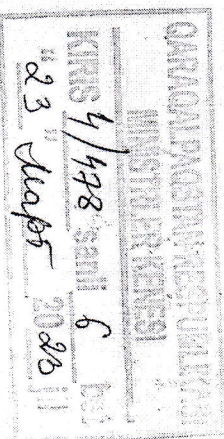 QARAQALPAQSTAN RESPUBLIKASI
MINISTRLER KEŃESI
KIRIS 4/478 sanlı 6 bet
"23" март 2023 jıl